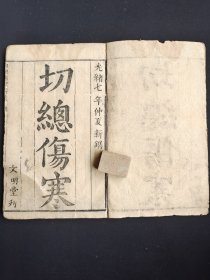 光緒七年仲夏新鐫
切總傷寒
文明堂行